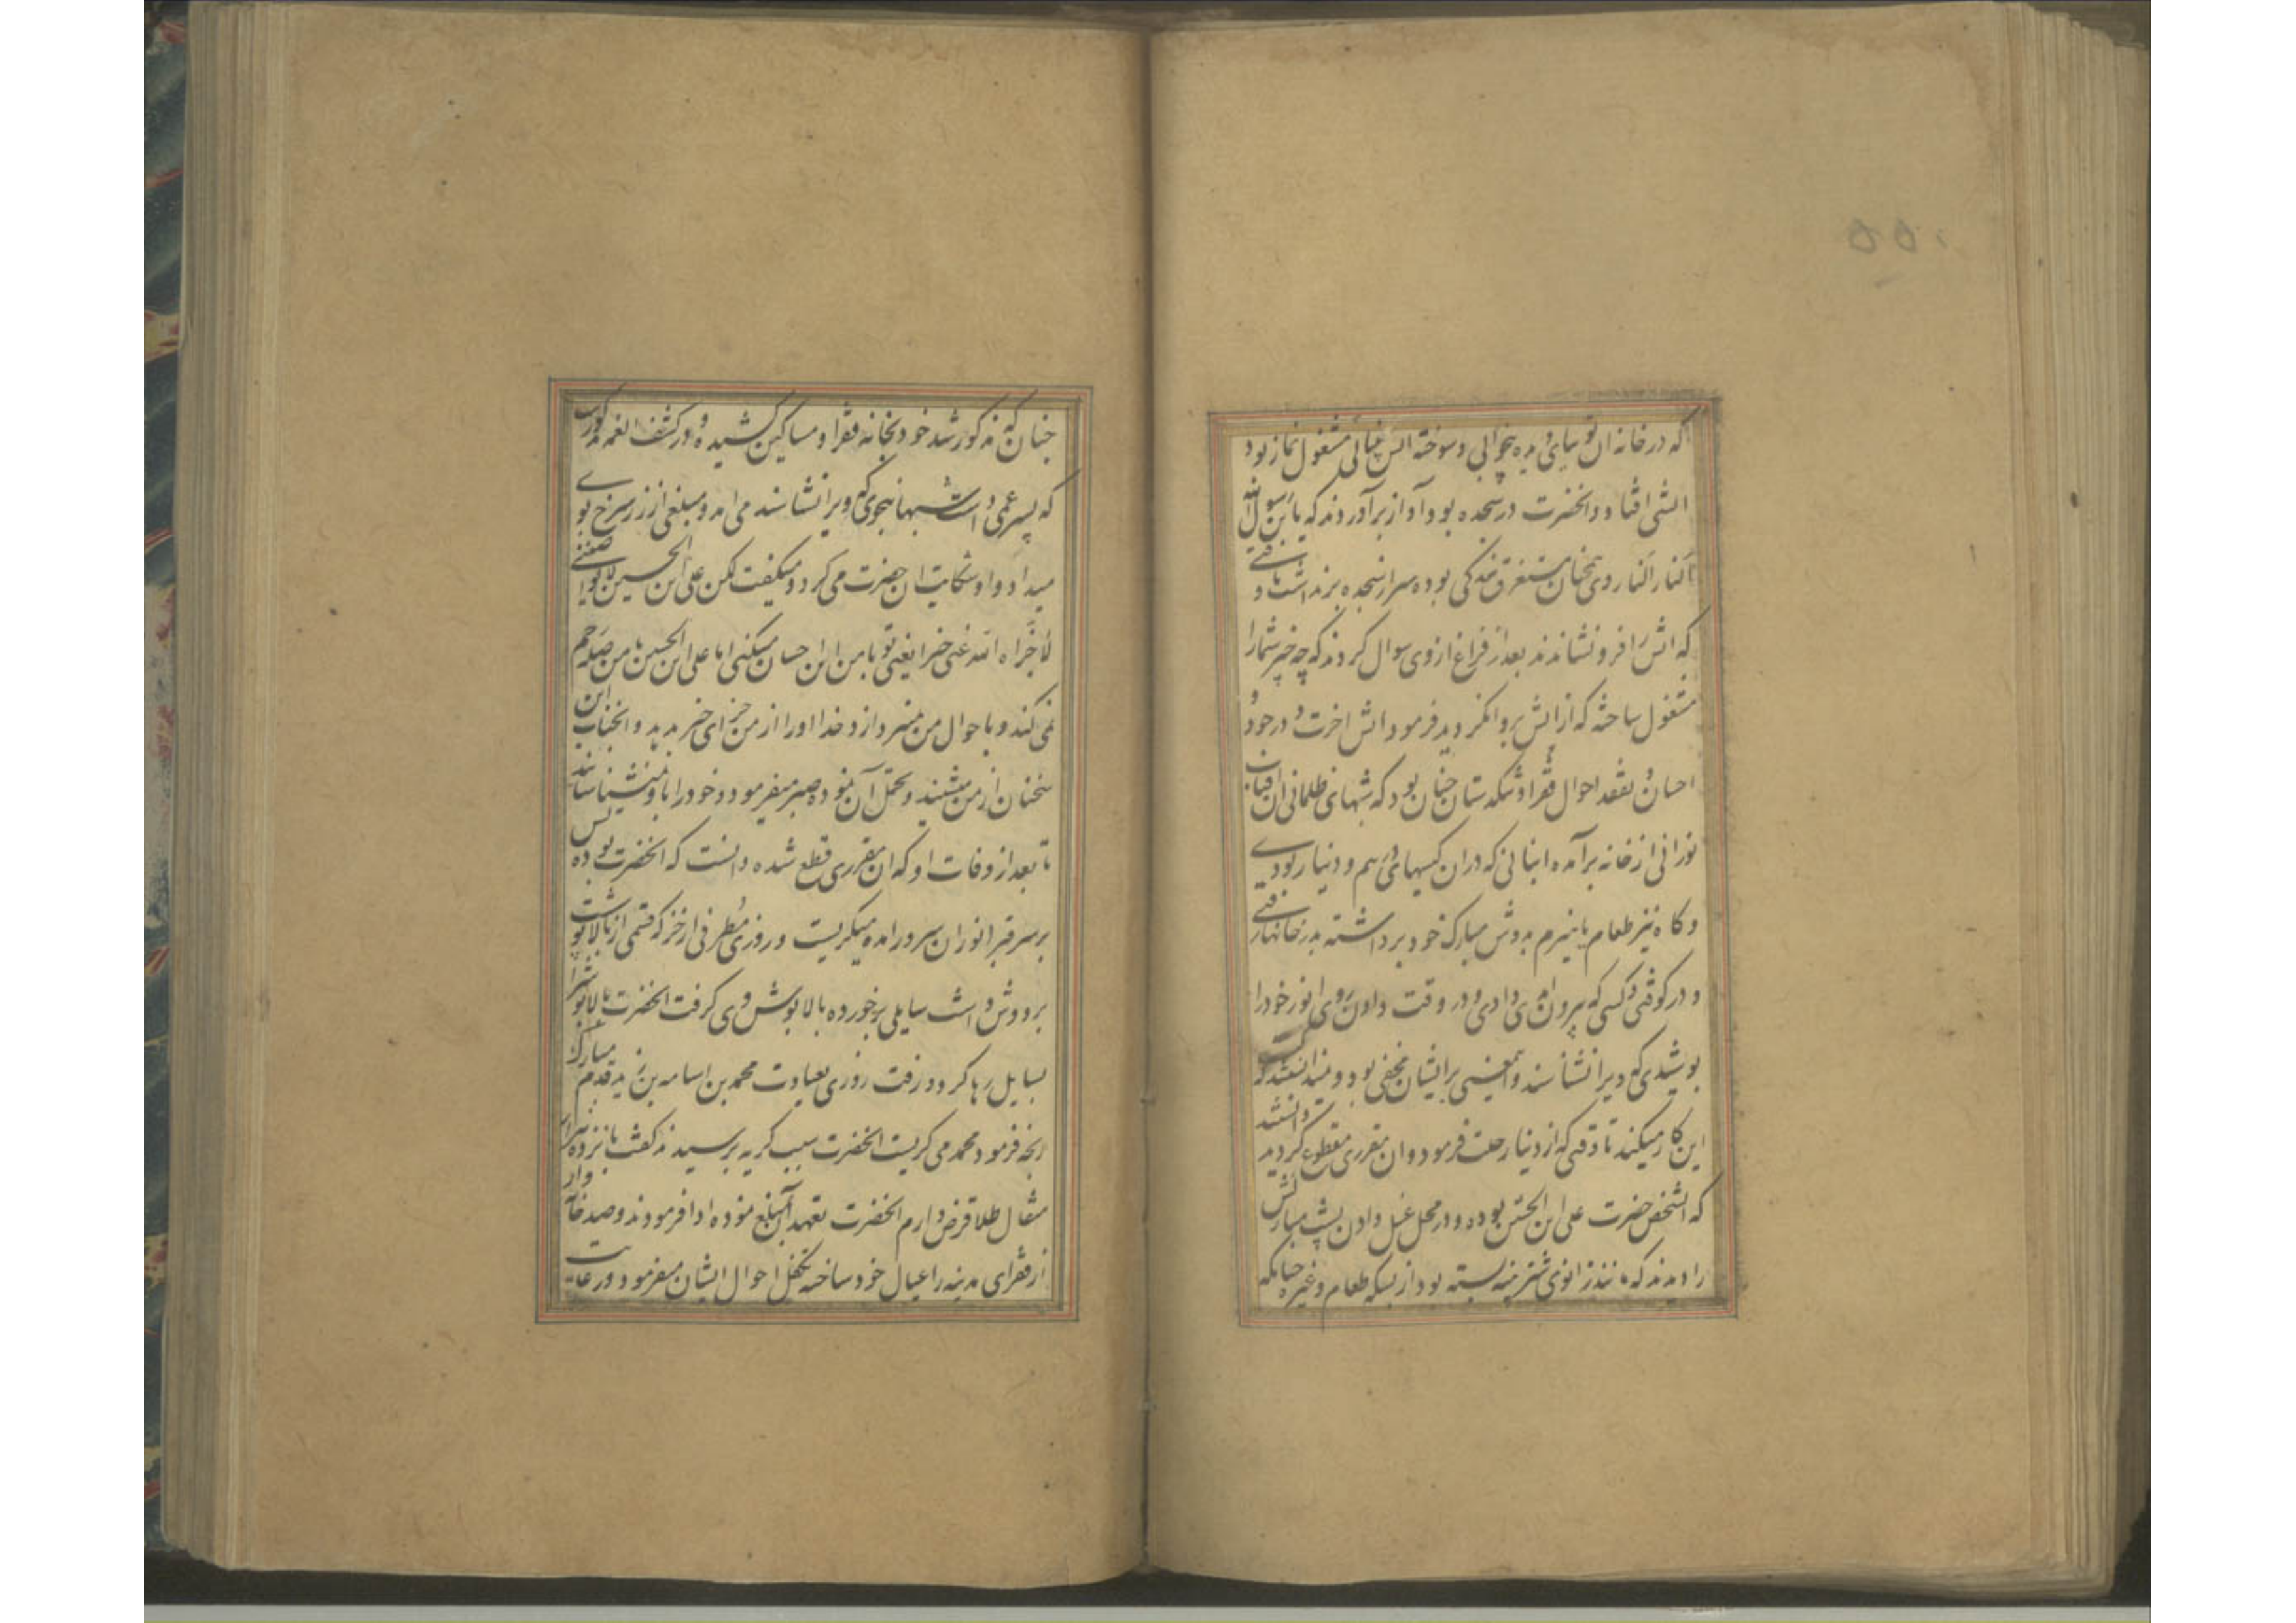 ۵۵۰
که در خانه ان نور بینای دیده و سوخته اتش مشغول نماز بود
اتشی افتاد و انحضرت در سجده بود و آواز برآوردند که یا بن رسول الله
النار النار وی همچنان مستغرق بندکی بوده سر از سجده برنداشت تا وقتی
که اتش را فرو نشاندند بعد از فراغ از وی سوال کردند که چه چیز شما را
مشغول ساخته که از اتش پروا نکردید فرمود اتش اخرت و در جود و
احسان و تفقد احوال فقرا و شکستکان چنان بود که شبهای ظلمانی ان افتاب
نورانی از خانه برآمده انبانی که در ان کیسهای درهم و دینار بودی
و کاه نیز طعام یا هیزم بدوش مبارک خود برداشته بدر خانها رفتی
و در کوفتی و کسی که بیرون امدی دادی و در وقت دادن روی انور خود را
پوشیدی که ویرا نشناسند و این معنی بر ایشان مخفی بود و نمیدانستند که کیست
این کار میکند تا وقتی که از دنیا رحلت فرمود و ان مقرری مقطوع کردید دانستند
که انشخص حضرت علی ابن الحسین بوده و در محل غسل دادن پشت مبارکش
را دیدند که مانند زانوی شتر پینه بسته بود از بسکه طعام و غیره چنانکه
چنان که مذکور شد خود بخانه فقرا و مساکین کشیده و در کشف الغمه مذکورست
که پسر عمی داشت شبها بنحوی که ویرا نشناسند می امد و مبلغی از زر سرخ بوی
میداد و او شکایت ان حضرت می کرد و میکفت لکن علی بن الحسین لا یواصلنی
لا جزاه الله عنی خیرا یعنی تو با من این احسان میکنی اما علی ابن الحسین با من صله رحم
نمی کند و باحوال من نمیپردازد خدا او را از من جزای خیر ندهد و انجناب این
سخنان از من میشنید و تحمل آن نموده صبر میفرمود و خود را باو نمیشناسانید
تا بعد از وفات او که ان مقرری قطع شده دانست که انحضرت بوده پس
بر سر قبر انور ان سرور امده میکریست و روزی مطرفی از خز که قسمی از بالاپوشست
بر دوش داشت سایلی برخورده بالاپوش وی کرفت انحضرت بالاپوش را
بسایل رها کرد و رفت روزی بعیادت محمد بن اسامه بن زید قدم مبارک
رنجه فرمود محمد می کریست انحضرت سبب کریه پرسیدند کفت پانزده هزار
مثقال طلا قرض دارم انحضرت تعهد آن مبلغ نموده ادا فرمودند و صد خانه وار
از فقرای مدینه را عیال خود ساخته تکفل احوال ایشان میفرمود و رعایت